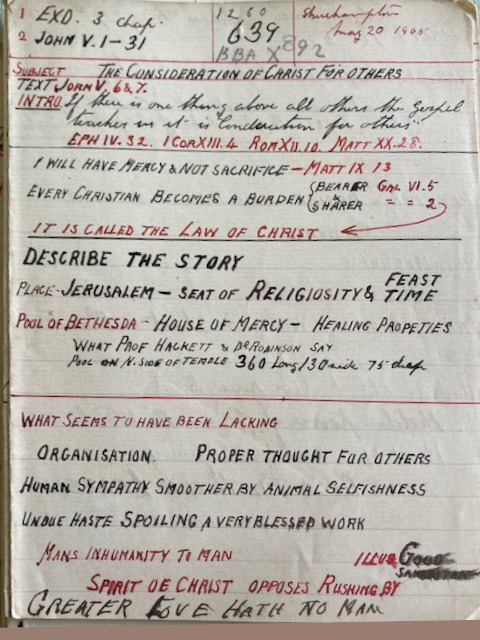 1 EXD. 3 chap.
2 JOHN V. 1-31
1260
639
BBA X 892
May 20 1905
SUBJECT THE CONSIDERATION OF CHRIST FOR OTHERS
TEXT JOHN V. 6&7.
INTRO If there is one thing above all others the Gospel
teaches us it is Consideration for others.
EPH IV. 32. 1 COR XIII. 4 ROM XII. 10. MATT XX. 28.
I WILL HAVE MERCY & NOT SACRIFICE - MATT IX 13
EVERY CHRISTIAN BECOMES A BURDEN { BEARER GAL VI. 5
& SHARER = = 2
IT IS CALLED THE LAW OF CHRIST
DESCRIBE THE STORY
PLACE - JERUSALEM - SEAT OF RELIGIOSITY & FEAST TIME
POOL OF BETHESDA - HOUSE OF MERCY - HEALING PROPETIES
WHAT PROF HACKETT & DR ROBINSON SAY
POOL ON N. SIDE OF TEMPLE 360 long 130 wide 75 deep
WHAT SEEMS TO HAVE BEEN LACKING
ORGANISATION. PROPER THOUGHT FOR OTHERS
HUMAN SYMPATHY SMOOTHER BY ANIMAL SELFISHNESS
UNDUE HASTE SPOILING A VERY BLESSED WORK
MANS INHUMANITY TO MAN
ILLUS GOOD SAMARITAN
SPIRIT OF CHRIST OPPOSES RUSHING BY
GREATER LOVE HATH NO MAN